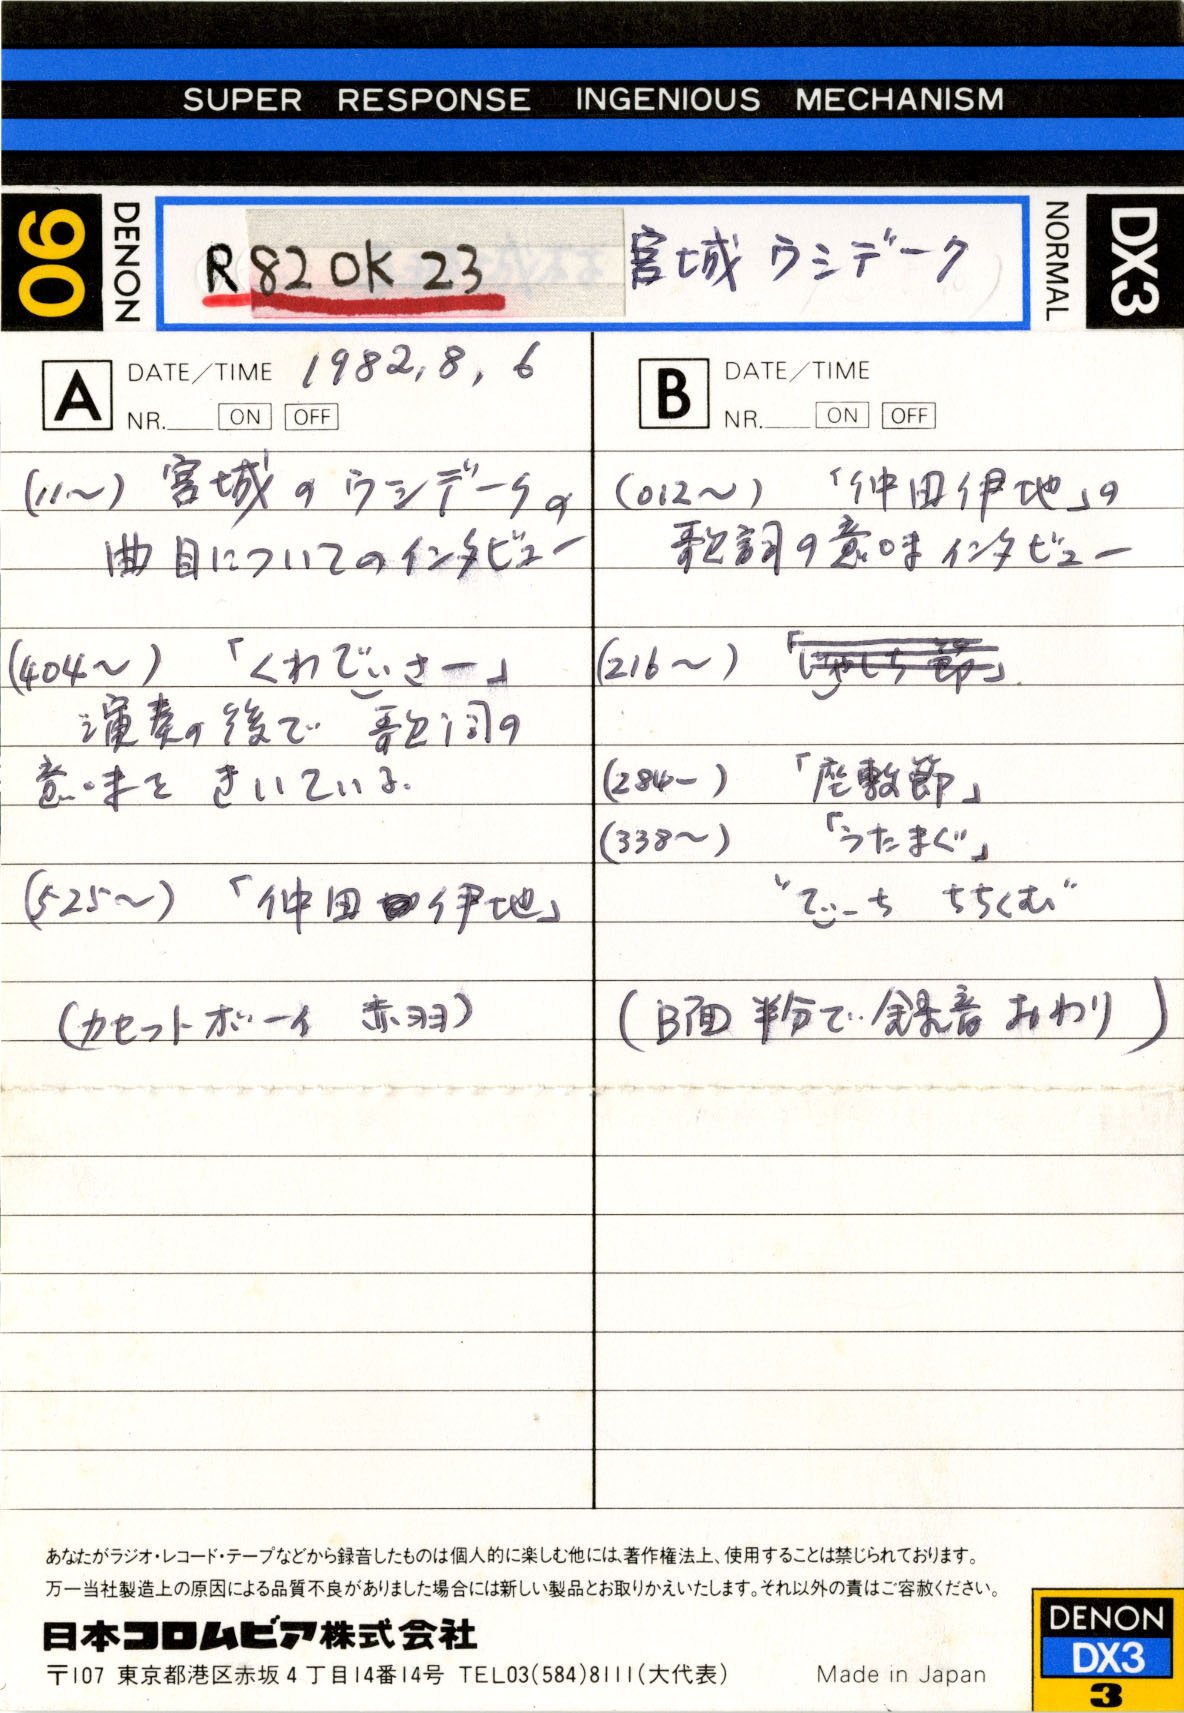 SUPER RESPONSE INGENIOUS MECHANISM
90
DENON
R 82 OK 23
宮城 ウシデーク
NORMAL
DX3
A DATE/TIME 1982, 8, 6
NR. ON OFF
(11〜) 宮城のウシデークの
曲目についてのインタビュー
(404〜) 「くわでぃさー」
演奏の後で 歌詞の
意味をきいている.
(525〜) 「仲田伊地」
(カセットボーイ 赤羽)
B DATE/TIME
NR. ON OFF
(012〜) 「仲田伊地」の
歌詞の意味インタビュー
(216〜) 「はやしち節」
(284ー) 「座敷節」
(338〜) 「うたまぐ」
"でぃーち ちちくむ"
(B面 半分で 録音 おわり)
あなたがラジオ・レコード・テープなどから録音したものは個人的に楽しむ他には、著作権法上、使用することは禁じられております。
万一当社製造上の原因による品質不良がありました場合には新しい製品とお取りかえいたします。それ以外の責はご容赦ください。
日本コロムビア株式会社
〒107 東京都港区赤坂4丁目14番14号 TEL03(584)8111(大代表)
Made in Japan
DENON
DX3
3